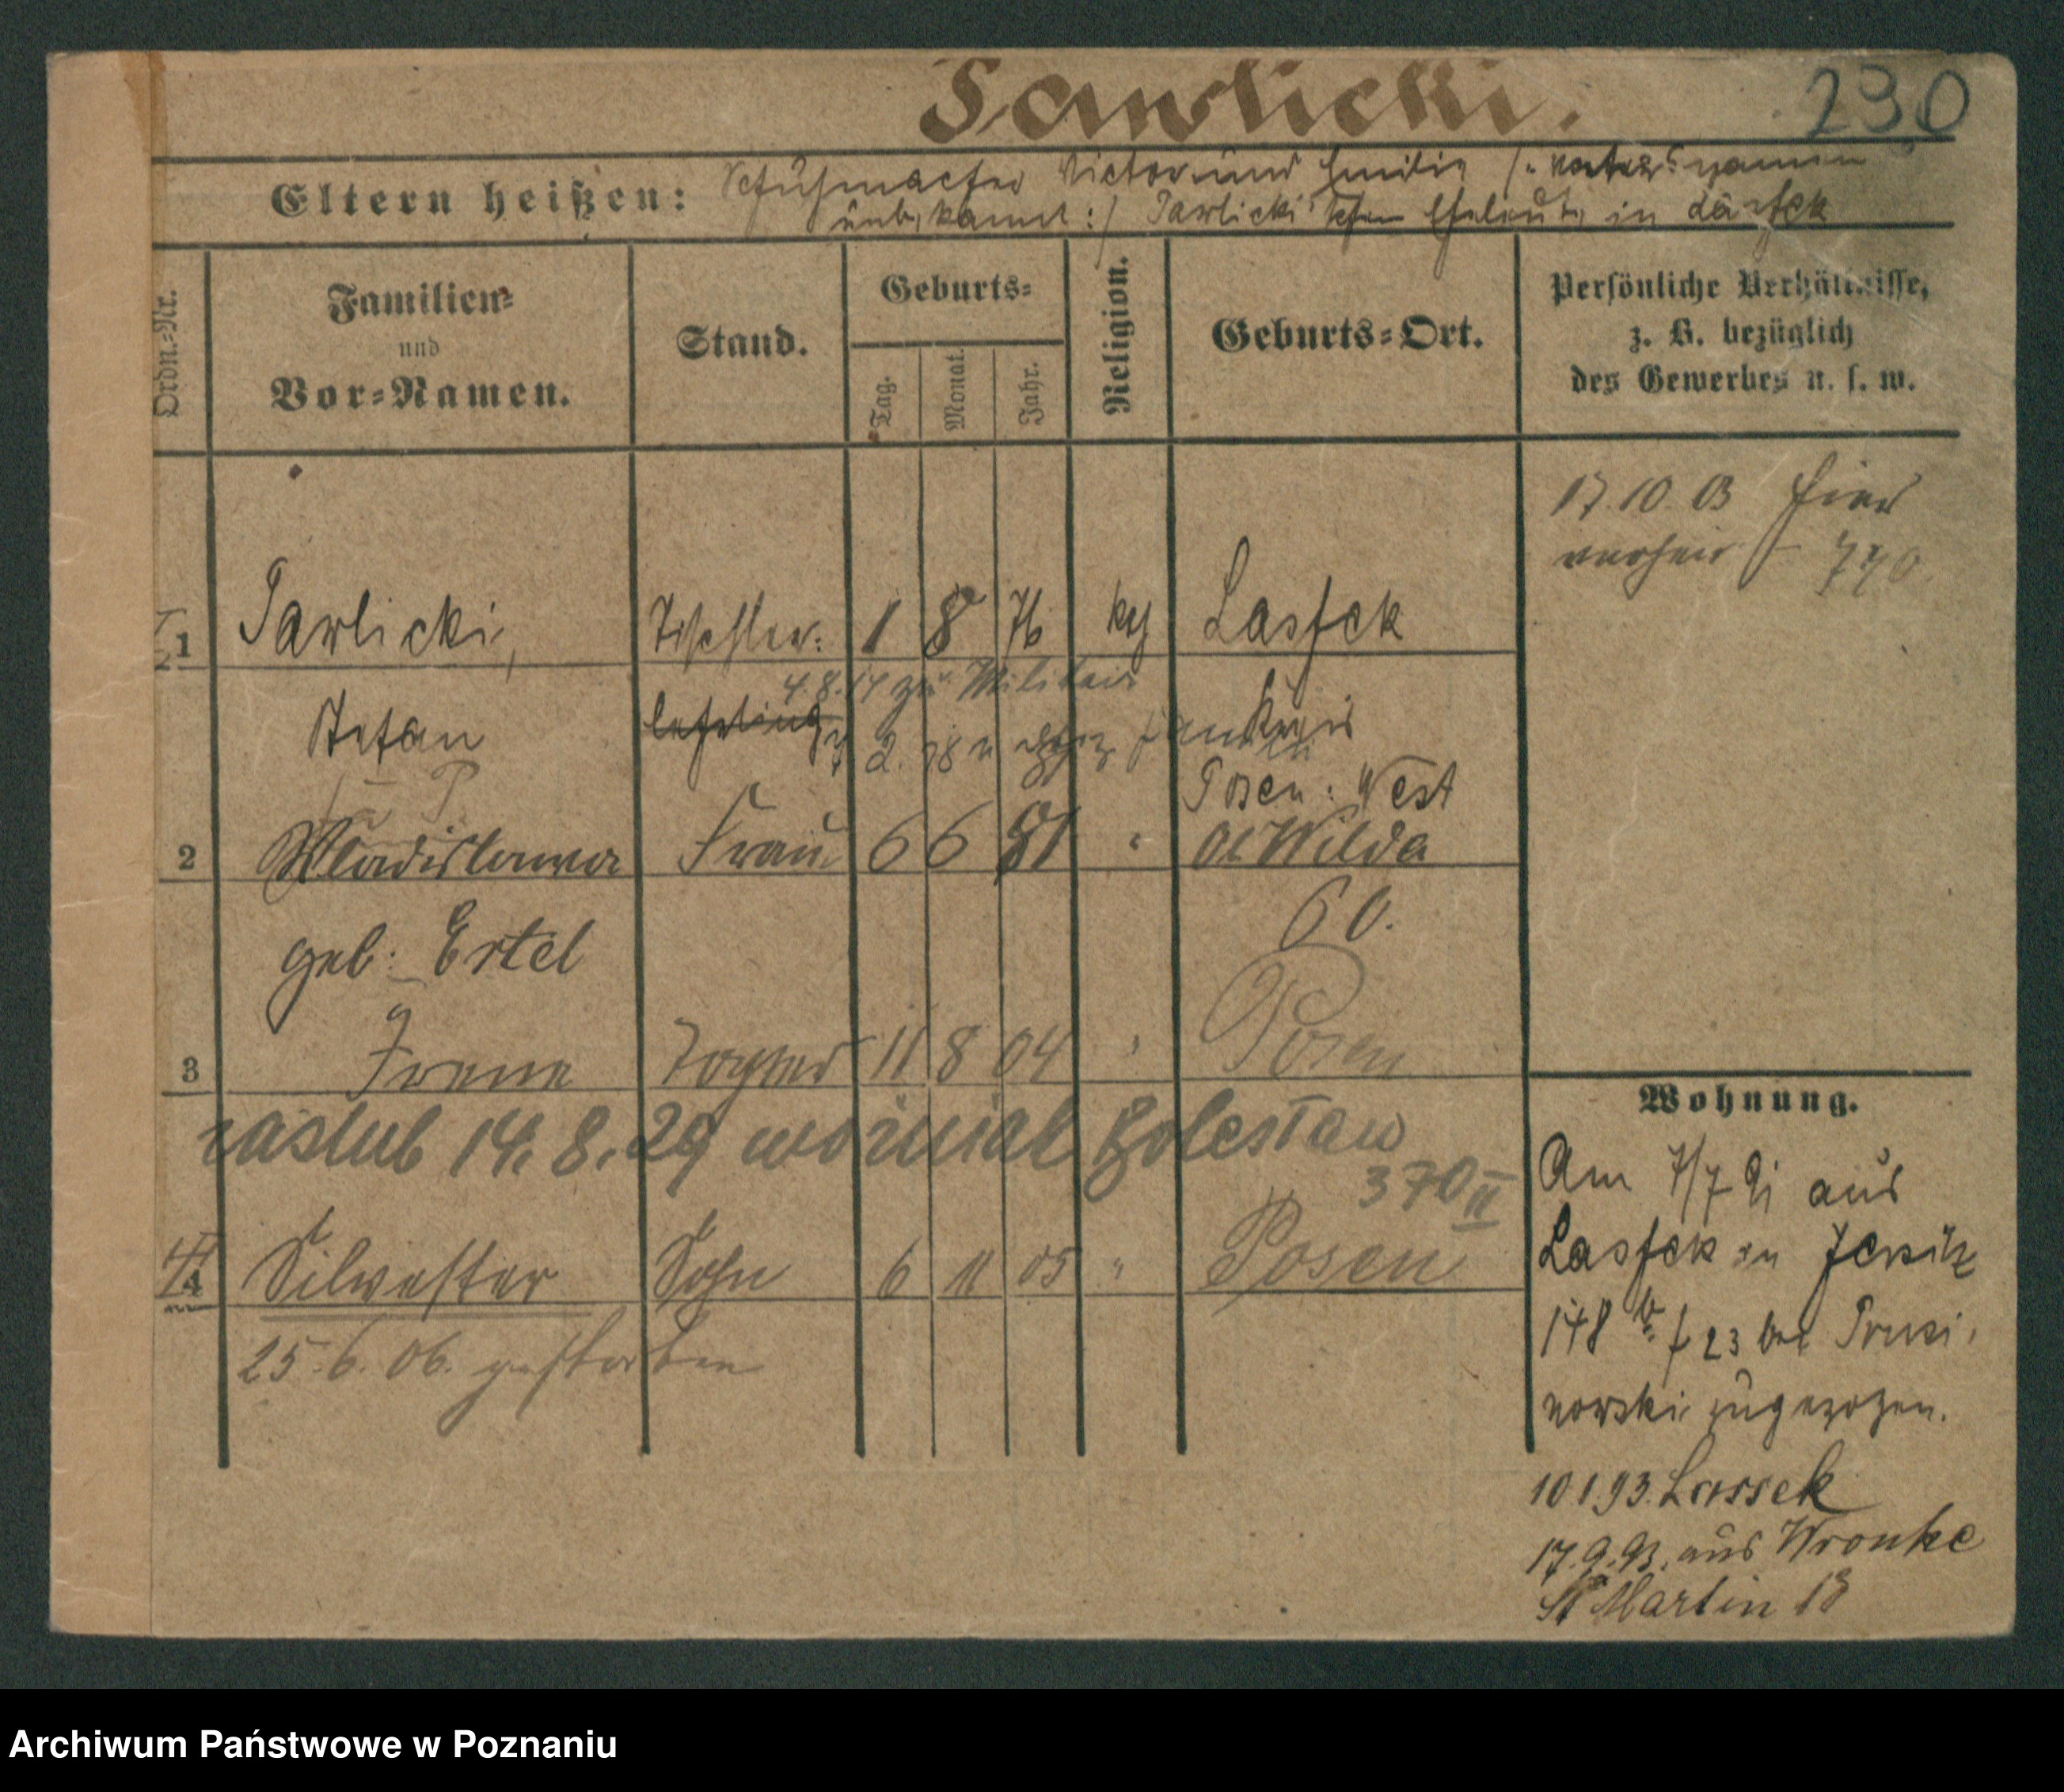 Pawlicki. 230
Eltern heißen: Schuhmacher Victor und Emilie /: Vaters namen
unbekannt :/ Pawlicki'schen Eheleute in Lassek
Ordn.-Nr.
Familien-
und
Vor-Namen.
Stand.
Geburts-
Tag.
Monat.
Jahr.
Religion.
Geburts-Ort.
Persönliche Verhältnisse,
z. B. bezüglich
des Gewerbes u. s. w.
17.10.03 hier
verheir 770
1 Pawlicki, Tischler: 1 8 76 kath Lassek
4.8.14 zu Militair
Stefan lehrling Kreis
Posen: West
2 Wladislawa Frau 6 6 81 " Ob Wilda
geb: Ertel 60.
3 Irene Tochter 11 8 04 " Posen
zaslub 14.8.29 Bolesław
370 II
4 Silvester Sohn 6 11 05 " Posen
25.6.06. gestorben
Wohnung.
Am 7/7 91 aus
Lassek in Jersitz
148 b f 23 bei Prusi-
nowski zugezogen.
10 1.93. Lassek
17.9.93. aus Wronke
St Martin 18
Archiwum Państwowe w Poznaniu